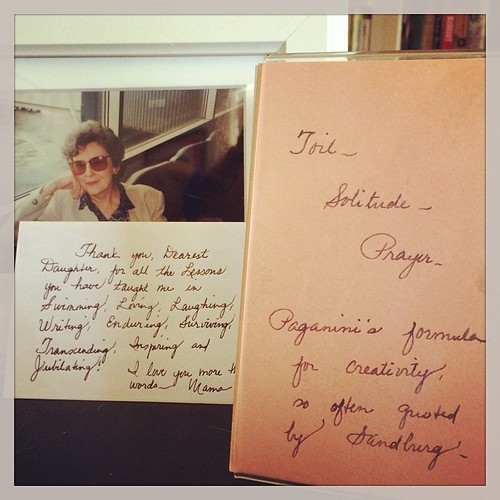 Thank you, Dearest
Daughter, for all the Lessons
you have taught me in
Swimming, Loving, Laughing,
Writing, Enduring, Surviving,
Transcending, Inspiring and
Jubilating!
I love you more
words— Mama
Toil—
Solitude—
Prayer—
Paganini's formula
for creativity,
so often quoted
by Sandburg—